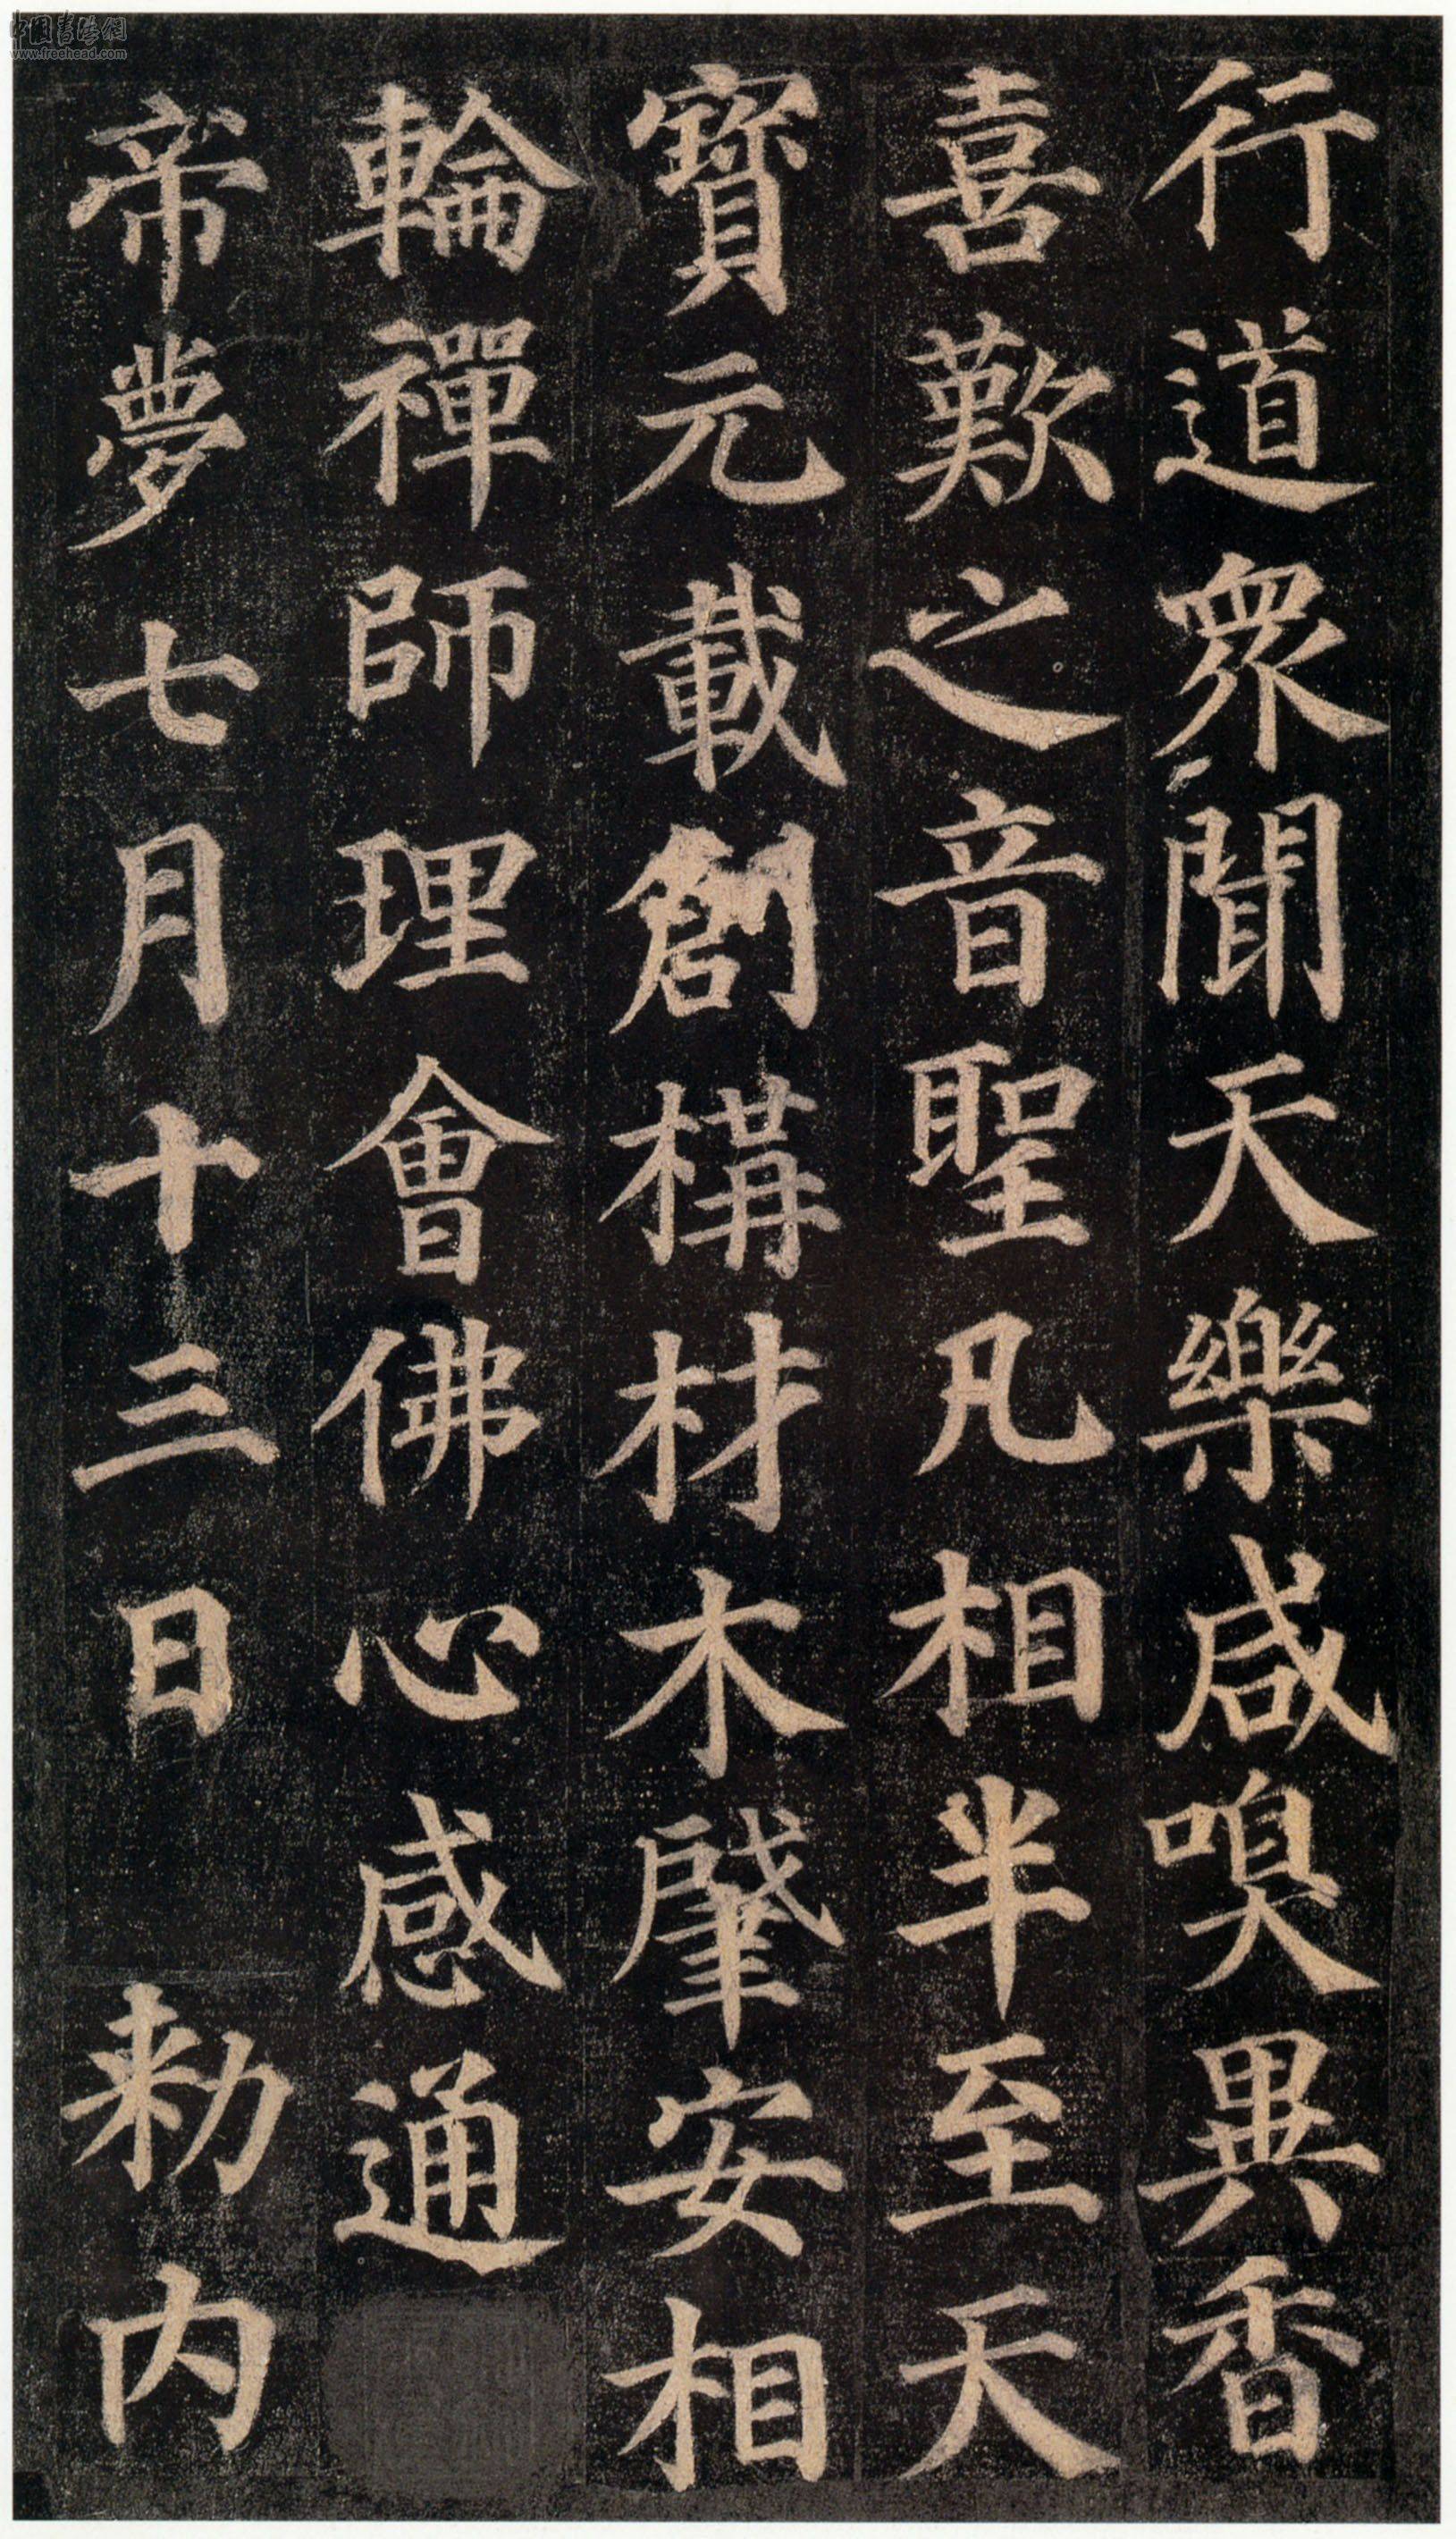 行道眾聞天樂咸嗅異香
喜歎之音聖凡相半至天
寶元載創構材木肇安相
輪禪師理會佛心感通
帝夢七月十三日 勑内
中国书法网
www.freehead.com